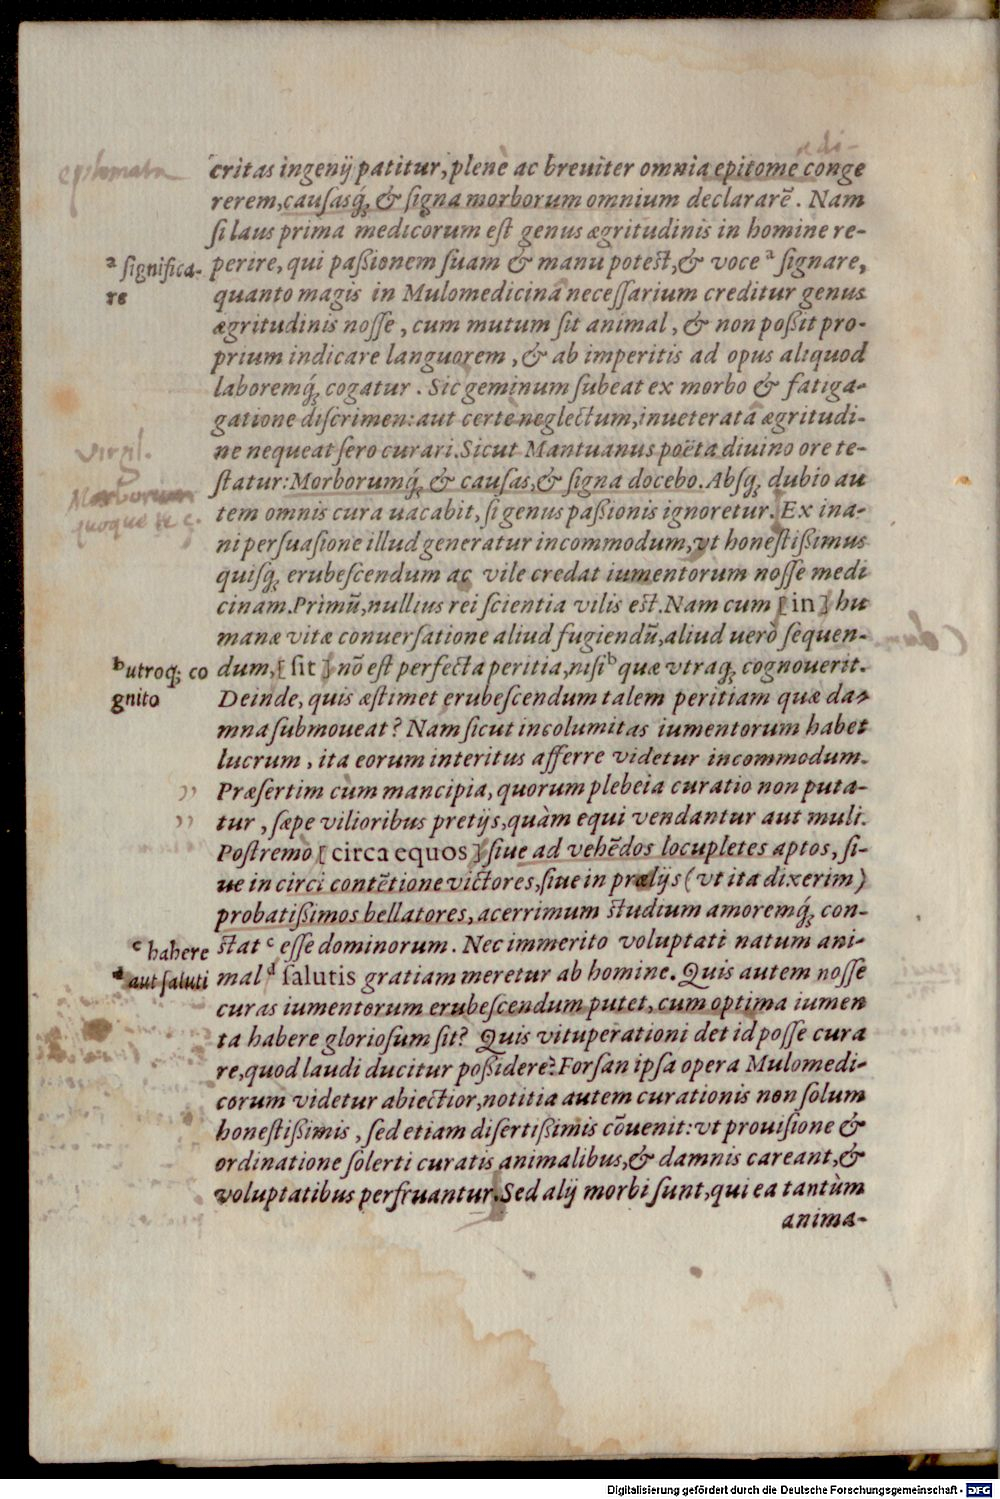 critas ingenij patitur, plenè ac breuiter omnia epitome conge
rerem, causasq́; & signa morborum omnium declararẽ. Nam
si laus prima medicorum est genus ægritudinis in homine re-
perire, qui paßionem suam & manu potest, & voce ᵃ signare,
ᵃ significa-
re
quanto magis in Mulomedicina necessarium creditur genus
ægritudinis nosse, cum mutum sit animal, & non poßit pro-
prium indicare languorem, & ab imperitis ad opus aliquod
laboremq́; cogatur. Sic geminum subeat ex morbo & fatiga-
gatione discrimen: aut certè neglectum, inueterata ægritudi-
ne nequeat sero curari. Sicut Mantuanus poëta diuino ore te-
Virgil.
statur: Morborumq́; & causas, & signa docebo. Absq; dubio au
Morborum
quoque te c.
tem omnis cura uacabit, si genus paßionis ignoretur. Ex ina-
ni persuasione illud generatur incommodum, vt honestißimus
quisq; erubescendum ac vile credat iumentorum nosse medi
cinam. Primũ, nullius rei scientia vilis est. Nam cum [in] hu
manæ vitæ conuersatione aliud fugiendũ, aliud uerò sequen-
dum, [sit] nõ est perfecta peritia, nisi ᵇ quæ vtraq; cognouerit.
ᵇ utroq; co
gnito
Deinde, quis æstimet erubescendum talem peritiam quæ da-
mna submoueat? Nam sicut incolumitas iumentorum habet
lucrum, ita eorum interitus afferre videtur incommodum.
Præsertim cùm mancipia, quorum plebeia curatio non puta-
tur, sæpe vilioribus pretijs, quàm equi vendantur aut muli.
Postremò [circa equos] siue ad vehẽdos locupletes aptos, si-
ue in circi contẽtione victores, siue in prælijs (vt ita dixerim)
probatißimos bellatores, acerrimum studium amoremq́; con-
stat ᶜ esse dominorum. Nec immerito voluptati natum ani-
ᶜ habere
mal ᵈ salutis gratiam meretur ab homine. Quis autem nosse
ᵈ aut saluti
curas iumentorum erubescendum putet, cum optima iumen
ta habere gloriosum sit? Quis vituperationi det id posse cura
re, quod laudi ducitur poßidere? Forsan ipsa opera Mulomedi-
corum videtur abiectior, notitia autem curationis non solum
honestißimis, sed etiam disertißimis cõuenit: vt prouisione &
ordinatione solerti curatis animalibus, & damnis careant, &
voluptatibus perfruantur. Sed alij morbi sunt, qui ea tantùm
anima-
Digitalisierung gefördert durch die Deutsche Forschungsgemeinschaft - DFG